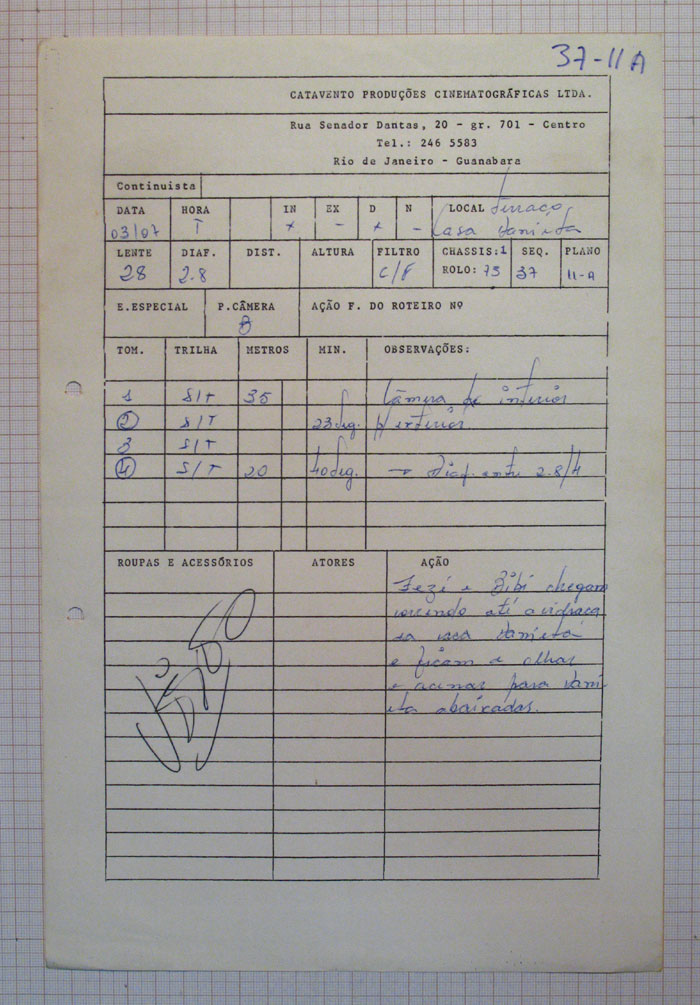 37-11A
CATAVENTO PRODUÇÕES CINEMATOGRÁFICAS LTDA.
Rua Senador Dantas, 20 - gr. 701 - Centro
Tel.: 246 5583
Rio de Janeiro - Guanabara
Continuista
DATA HORA IN EX D N LOCAL terraço
03/07 T + - + - Casa
LENTE DIAF. DIST. ALTURA FILTRO CHASSIS:1 SEQ. PLANO
28 2.8 C/F ROLO: 75 37 11-A
E.ESPECIAL P.CÂMERA AÇÃO F. DO ROTEIRO Nº
B
TOM. TRILHA METROS MIN. OBSERVAÇÕES:
1 S/T 35 Câmera de interior
2 S/T 23seg. p/exterior
3 S/T
4 S/T 20 40seg. → Diaf. entre 2.8/4
ROUPAS E ACESSÓRIOS ATORES AÇÃO
e Bibi chegam
correndo até a vidraça
da casa
e ficam a olhar
e para
abaixadas.